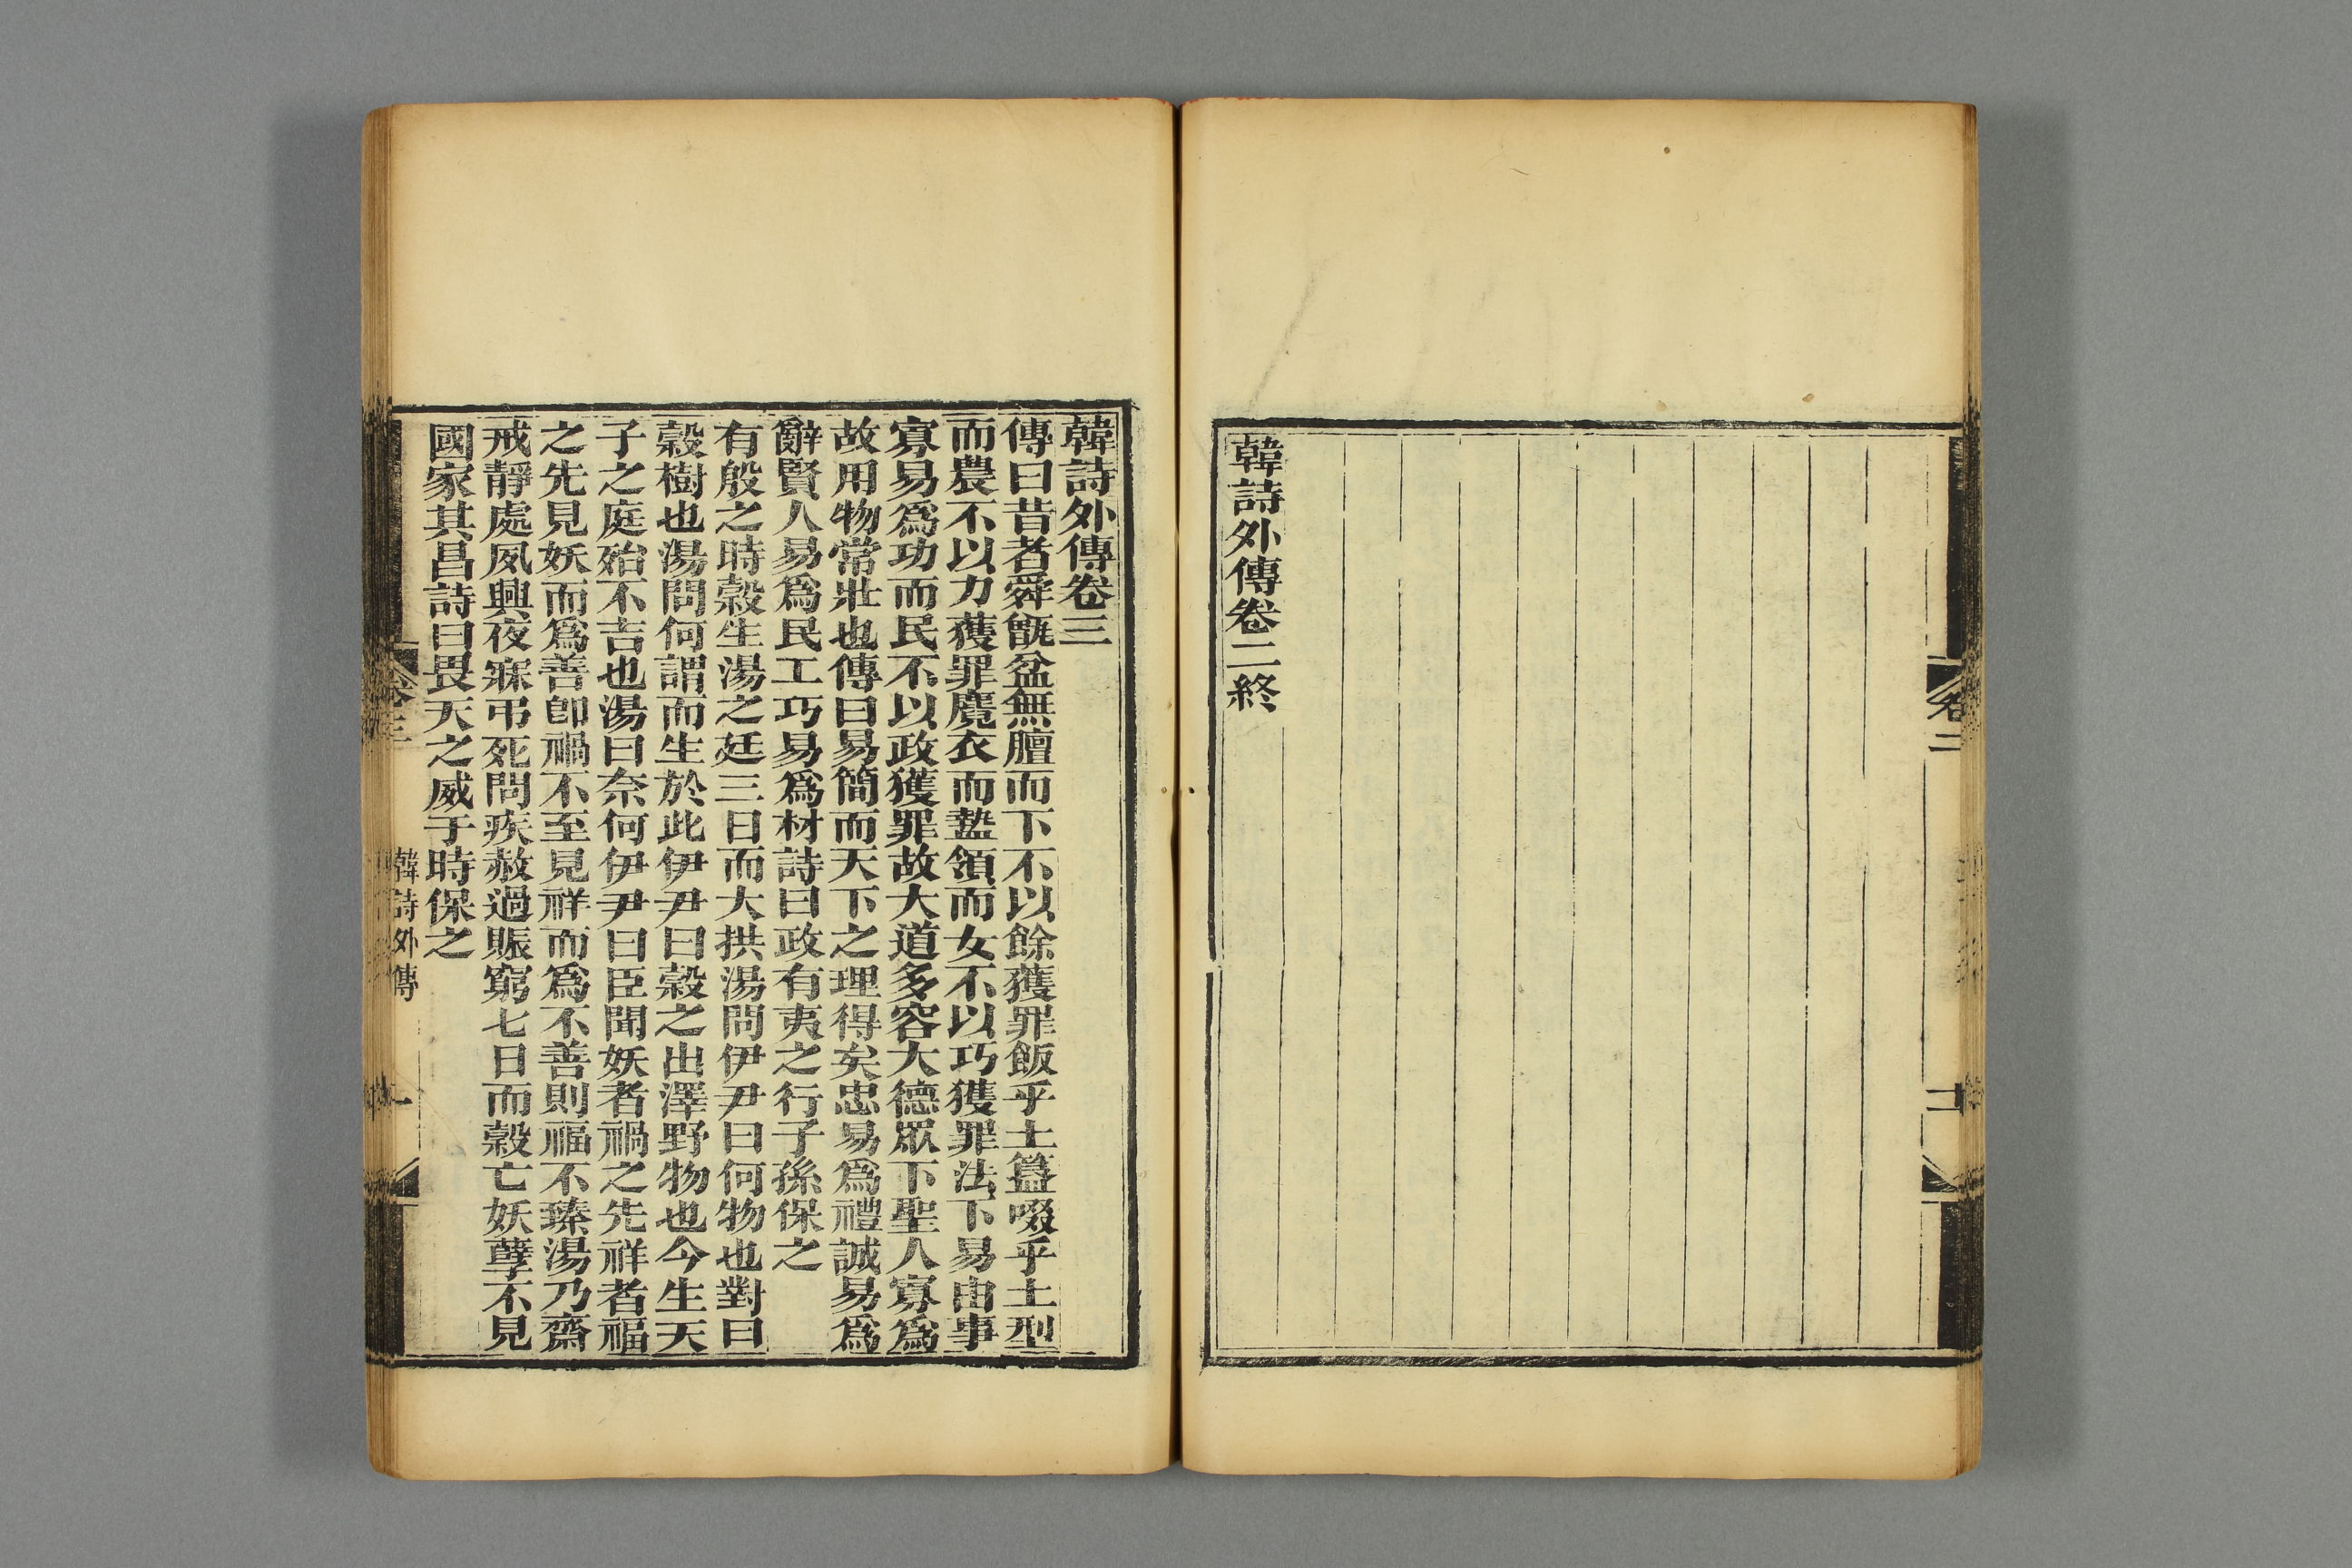 韓詩外傳卷二終
卷二
十一
韓詩外傳卷三
傳曰昔者舜甑盆無膻而下不以餘獲罪飯乎土簋啜乎土型
而農不以力獲罪麑衣而盩領而女不以巧獲罪法下易由事
寡易爲功而民不以政獲罪故大道多容大德眾下聖人寡爲
故用物常壯也傳曰易簡而天下之理得矣忠易爲禮誠易爲
辭賢人易爲民工巧易爲材詩曰政有夷之行子孫保之
有殷之時穀生湯之廷三日而大拱湯問伊尹曰何物也對曰
穀樹也湯問何謂而生於此伊尹曰穀之出澤野物也今生天
子之庭殆不吉也湯曰奈何伊尹曰臣聞妖者禍之先祥者福
之先見妖而爲善卽禍不至見祥而爲不善則福不臻湯乃齋
戒靜處夙興夜寐弔死問疾赦過賑窮七日而穀亡妖孽不見
國家其昌詩曰畏天之威于時保之
卷三
韓詩外傳
一